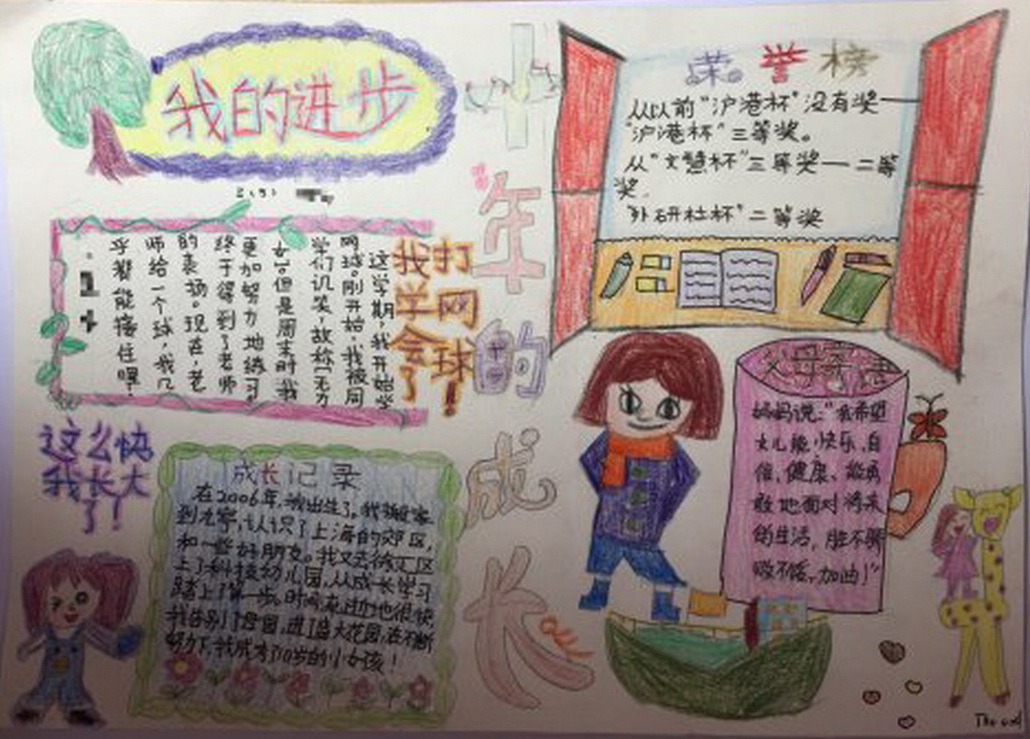 我的进步
2(5)
打网球!
我学会了
这学期,我开始学
网球。刚开始,我被同
学们讥笑,故称“无力
女”。但是周末时我
更加努力地练习
终于得到了老师
的表扬。现在,老
师给一个球,我几
乎都能接住哩!
这么快
我长大
了!
成长记录
在2006年,我出生了。我搬家
到九亭,认识了上海的郊区,
和一些好朋友。我又去徐汇区
上了科技幼儿园,从成长学习
踏上了第一步。时间走过也很快
我告别了母园,进了盛大花园,在不断
努力下,我成为10岁的小女孩!
十年的成长
荣誉榜
从以前“沪港杯”没有奖——
“沪港杯”三等奖。
从“文慧杯”三等奖——二等
奖。
“外研社杯”二等奖
父母寄语
妈妈说:“我希望
女儿能快乐,自
信,健康、能勇
敢地面对将来
的生活,胜不骄
败不馁,加油!”
The end